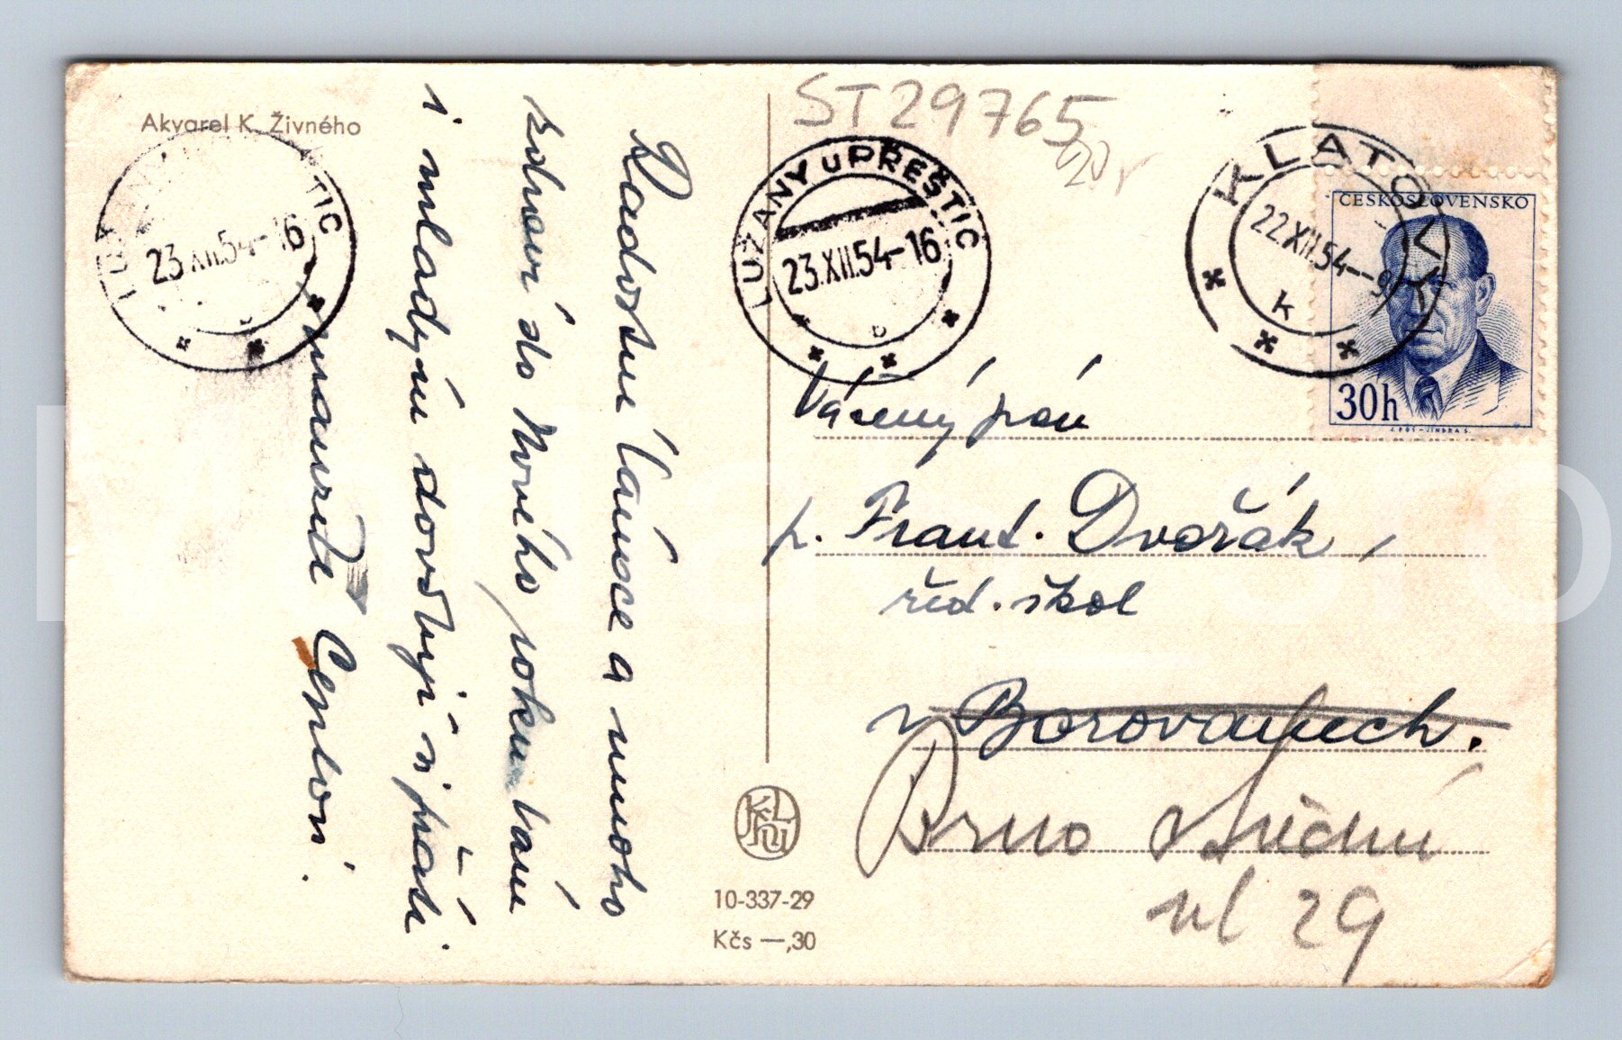 Akvarel K. Živného
Radostné Vánoce a mnoho
zdraví do Nového roku Vám
i mladým dovolují si přáti
manželé
ST29765
20,-
LUŽANY u PŘEŠTIC
23.XII.54-16
LUŽANY u PŘEŠTIC
23.XII.54-16
b
KLATOVY
22.XII.54--9
k
ČESKOSLOVENSKO
30h
Vážený pán
p. Frant. Dvořák,
říd. škol
v Borovanech.
Brno Střední
ul 29
10-337-29
Kčs —,30